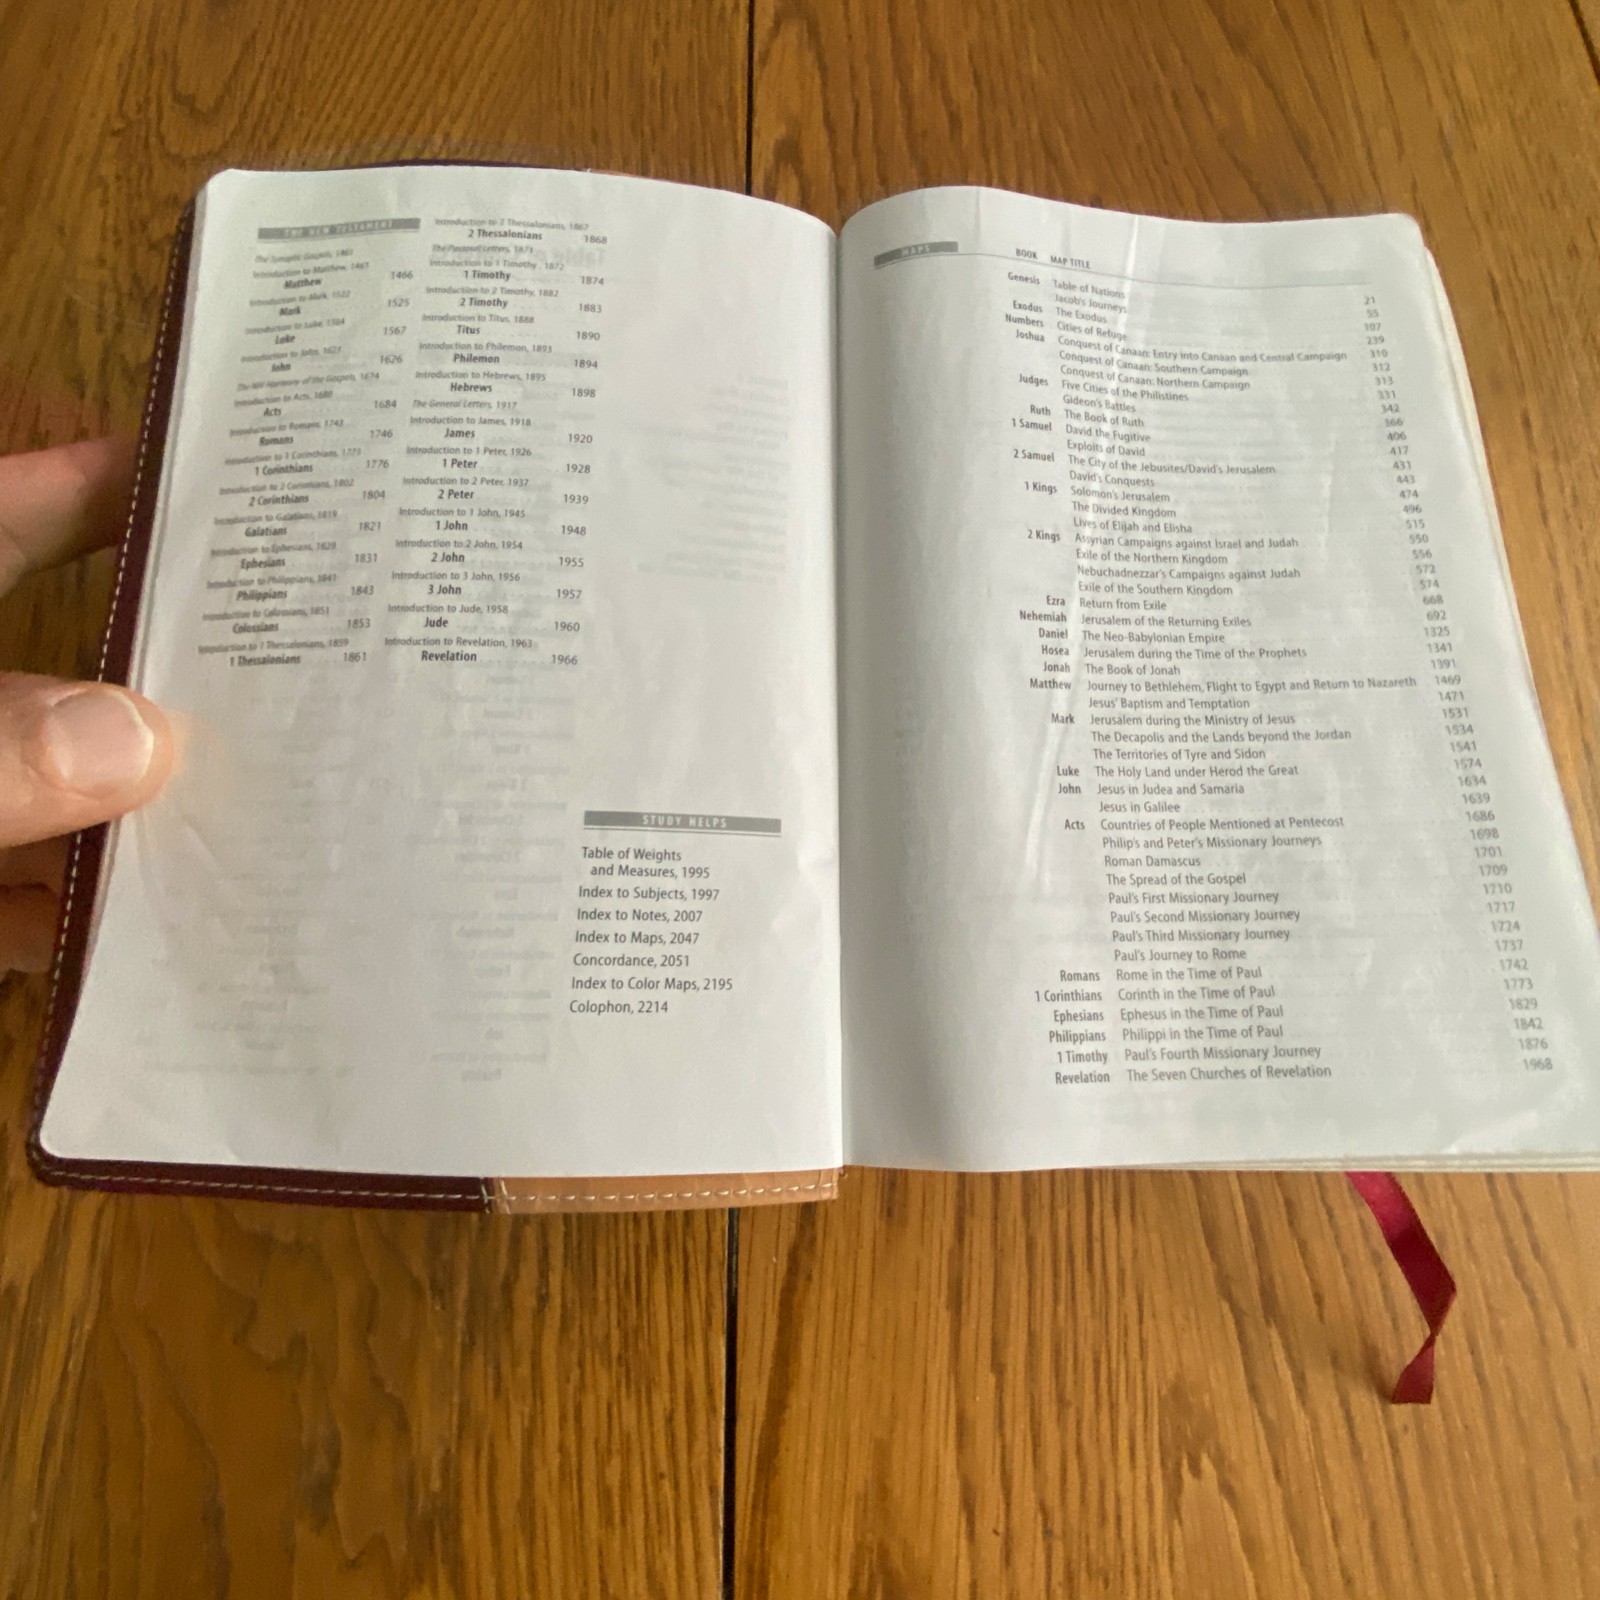 THE NEW TESTAMENT
The Synoptic Gospels, 1461
Introduction to Matthew, 1463
Matthew 1466
Introduction to Mark, 1522
Mark 1525
Introduction to Luke, 1564
Luke 1567
Introduction to John, 1624
John 1626
The NIV Harmony of the Gospels, 1674
Introduction to Acts, 1680
Acts 1684
Introduction to Romans, 1743
Romans 1746
Introduction to 1 Corinthians, 1773
1 Corinthians 1776
Introduction to 2 Corinthians, 1802
2 Corinthians 1804
Introduction to Galatians, 1819
Galatians 1821
Introduction to Ephesians, 1828
Ephesians 1831
Introduction to Philippians, 1841
Philippians 1843
Introduction to Colossians, 1851
Colossians 1853
Introduction to 1 Thessalonians, 1859
1 Thessalonians 1861
Introduction to 2 Thessalonians, 1867
2 Thessalonians 1868
The Pastoral Letters, 1871
Introduction to 1 Timothy, 1872
1 Timothy 1874
Introduction to 2 Timothy, 1882
2 Timothy 1883
Introduction to Titus, 1888
Titus 1890
Introduction to Philemon, 1893
Philemon 1894
Introduction to Hebrews, 1895
Hebrews 1898
The General Letters, 1917
Introduction to James, 1918
James 1920
Introduction to 1 Peter, 1926
1 Peter 1928
Introduction to 2 Peter, 1937
2 Peter 1939
Introduction to 1 John, 1945
1 John 1948
Introduction to 2 John, 1954
2 John 1955
Introduction to 3 John, 1956
3 John 1957
Introduction to Jude, 1958
Jude 1960
Introduction to Revelation, 1963
Revelation 1966
STUDY HELPS
Table of Weights
and Measures, 1995
Index to Subjects, 1997
Index to Notes, 2007
Index to Maps, 2047
Concordance, 2051
Index to Color Maps, 2195
Colophon, 2214
MAPS
BOOK MAP TITLE
Genesis Table of Nations 21
Jacob's Journeys 55
Exodus The Exodus 107
Numbers Cities of Refuge 239
Joshua Conquest of Canaan: Entry into Canaan and Central Campaign 310
Conquest of Canaan: Southern Campaign 312
Conquest of Canaan: Northern Campaign 313
Judges Five Cities of the Philistines 331
Gideon's Battles 342
Ruth The Book of Ruth 366
1 Samuel David the Fugitive 406
Exploits of David 417
2 Samuel The City of the Jebusites/David's Jerusalem 431
David's Conquests 443
1 Kings Solomon's Jerusalem 474
The Divided Kingdom 496
Lives of Elijah and Elisha 515
2 Kings Assyrian Campaigns against Israel and Judah 550
Exile of the Northern Kingdom 556
Nebuchadnezzar's Campaigns against Judah 572
Exile of the Southern Kingdom 574
Ezra Return from Exile 668
Nehemiah Jerusalem of the Returning Exiles 692
Daniel The Neo-Babylonian Empire 1325
Hosea Jerusalem during the Time of the Prophets 1341
Jonah The Book of Jonah 1391
Matthew Journey to Bethlehem, Flight to Egypt and Return to Nazareth 1469
Jesus' Baptism and Temptation 1471
Mark Jerusalem during the Ministry of Jesus 1531
The Decapolis and the Lands beyond the Jordan 1534
The Territories of Tyre and Sidon 1541
Luke The Holy Land under Herod the Great 1574
John Jesus in Judea and Samaria 1634
Jesus in Galilee 1639
Acts Countries of People Mentioned at Pentecost 1686
Philip's and Peter's Missionary Journeys 1698
Roman Damascus 1701
The Spread of the Gospel 1709
Paul's First Missionary Journey 1710
Paul's Second Missionary Journey 1717
Paul's Third Missionary Journey 1724
Paul's Journey to Rome 1737
Romans Rome in the Time of Paul 1742
1 Corinthians Corinth in the Time of Paul 1773
Ephesians Ephesus in the Time of Paul 1829
Philippians Philippi in the Time of Paul 1842
1 Timothy Paul's Fourth Missionary Journey 1876
Revelation The Seven Churches of Revelation 1968